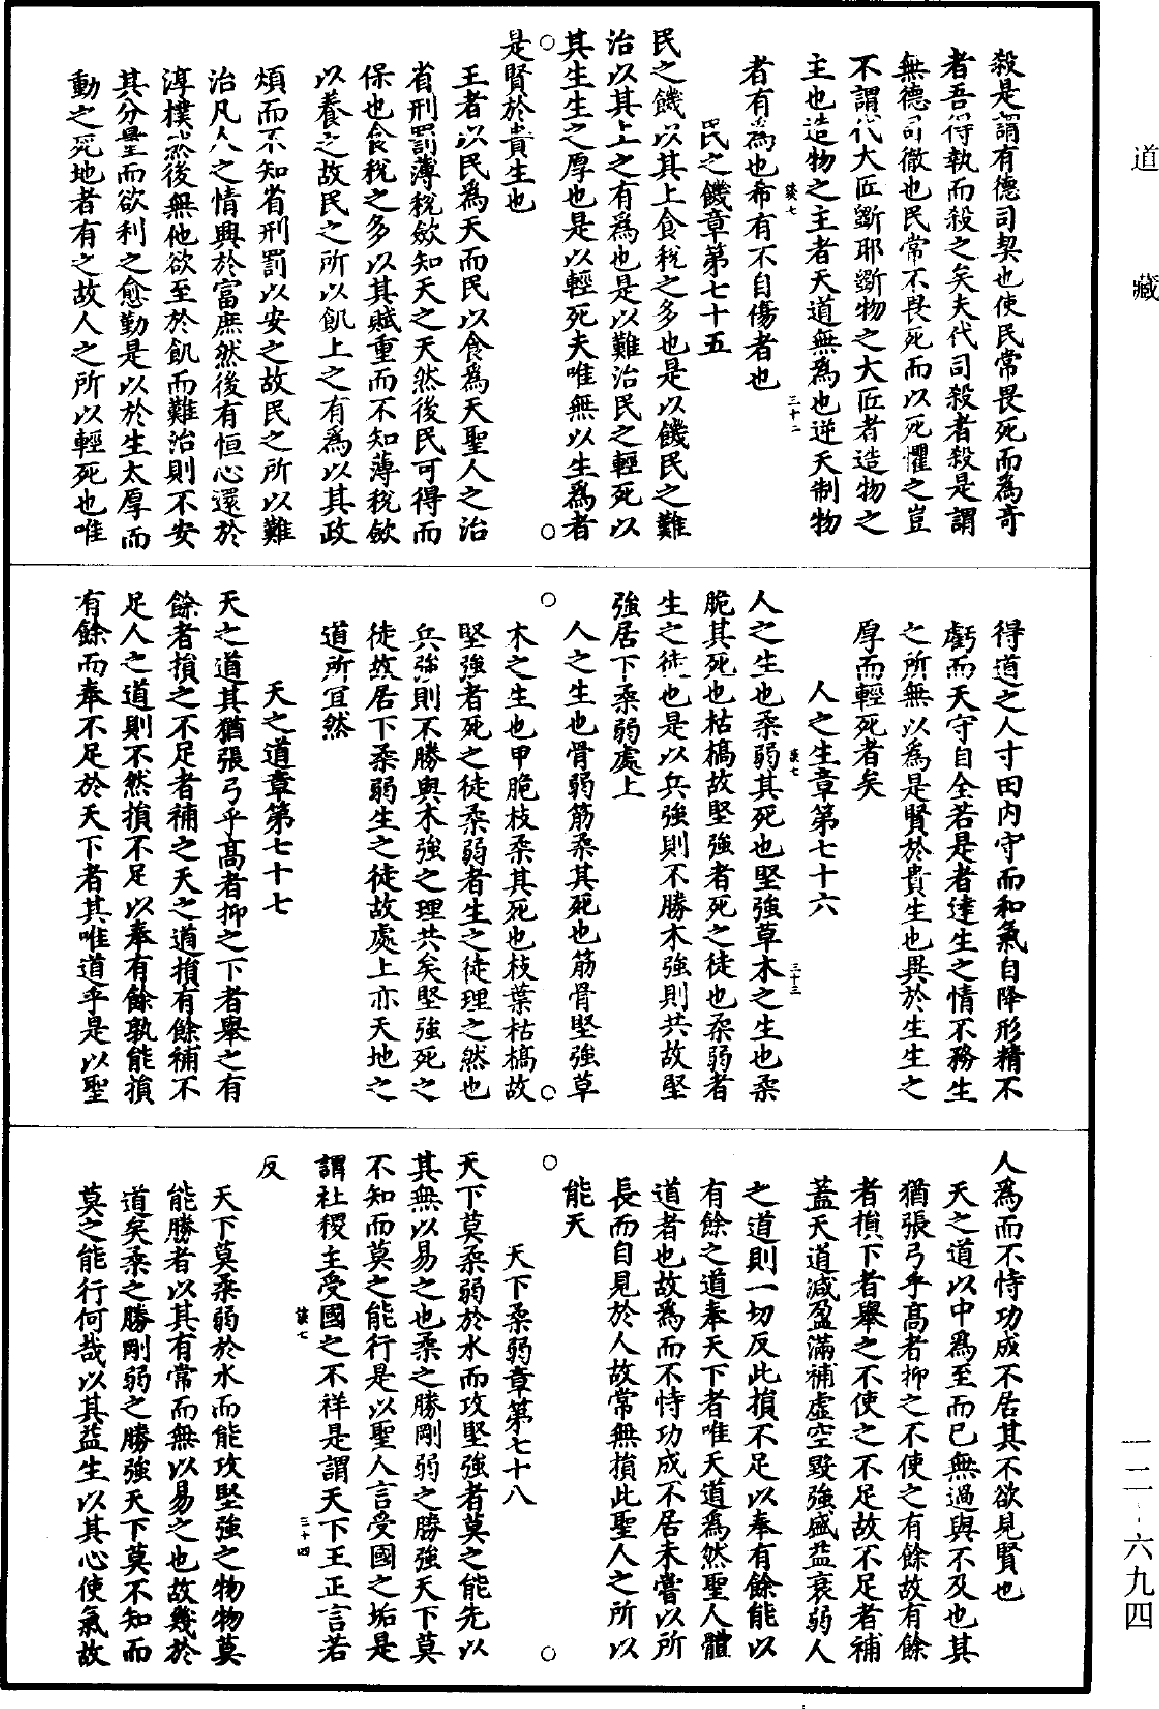 道藏
殺是謂有德司契也使民常畏死而為奇
者吾得執而殺之矣夫代司殺者殺是謂
無德司徹也民常不畏死而以死懼之豈
不謂代大匠斲耶斲物之大匠者造物之
主也造物之主者天道無為也逆天制物
者有為也希有不自傷者也
民之饑章第七十五
民之饑以其上食稅之多也是以饑民之難
治以其上之有為也是以難治民之輕死以
其生生之厚也是以輕死夫唯無以生為者
是賢於貴生也
王者以民為天而民以食為天聖人之治
省刑罰薄稅斂知天之天然後民可得而
保也食稅之多以其賦重而不知薄稅斂
以養之故民之所以飢上之有為以其政
煩而不知省刑罰以安之故民之所以難
治凡人之情興於富庶然後有恒心還於
淳樸然後無他欲至於飢而難治則不安
其分量而欲利之愈勤是以於生太厚而
動之死地者有之故人之所以輕死也唯
得道之人寸田內守而和氣自降形精不
虧而天守自全若是者達生之情不務生
之所無以為是賢於貴生也異於生生之
厚而輕死者矣
人之生章第七十六
人之生也柔弱其死也堅強草木之生也柔
脆其死也枯槁故堅強者死之徒也柔弱者
生之徒也是以兵強則不勝木強則共故堅
強居下柔弱處上
人之生也骨弱筋柔其死也筋骨堅強草
木之生也甲脆枝柔其死也枝葉枯槁故
堅強者死之徒柔弱者生之徒理之然也
兵強則不勝與木強之理共矣堅強死之
徒故居下柔弱生之徒故處上亦天地之
道所宜然
天之道章第七十七
天之道其猶張弓乎高者抑之下者舉之有
餘者損之不足者補之天之道損有餘補不
足人之道則不然損不足以奉有餘孰能損
有餘而奉不足於天下者其唯道乎是以聖
人為而不恃功成不居其不欲見賢也
天之道以中為至而已無過與不及也其
猶張弓乎高者抑之不使之有餘故有餘
者損下者舉之不使之不足故不足者補
蓋天道減盈滿補虛空毀強盛益衰弱人
之道則一切反此損不足以奉有餘能以
有餘之道奉天下者唯天道為然聖人體
道者也故為而不恃功成不居未嘗以所
長而自見於人故常無損此聖人之所以
能天
天下柔弱章第七十八
天下莫柔弱於水而攻堅強者莫之能先以
其無以易之也柔之勝剛弱之勝強天下莫
不知而莫之能行是以聖人言受國之垢是
謂社稷主受國之不祥是謂天下王正言若
反
天下莫柔弱於水而能攻堅強之物物莫
能勝者以其有常而無以易之也故幾於
道矣柔之勝剛弱之勝強天下莫不知而
莫之能行何哉以其益生以其心使氣故
三十二
三十三
三十四
一二-六九四